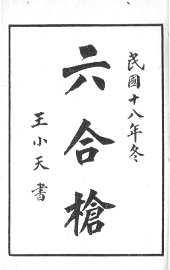 民國十八年冬
六合槍
王小天書